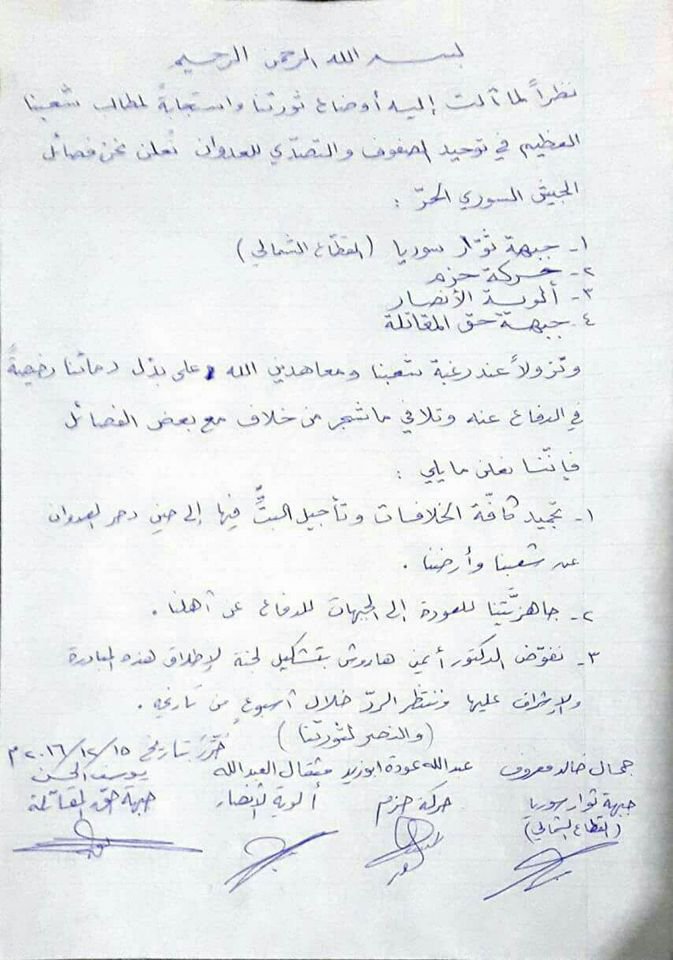 بسم الله الرحمن الرحيم
نظراً لما آلت إليه أوضاع ثورتنا واستجابةً لمطالب شعبنا
العظيم في توحيد الصفوف والتصدّي للعدوان نُعلن نحن فصائل
الجيش السوري الحرّ :
١- جبهة ثوّار سوريا (القطاع الشمالي)
٢- حركة حزم
٣- ألوية الأنصار
٤- جبهة حق المقاتلة
ونزولاً عند رغبة شعبنا ومعاهدين الله على بذل دمائنا رخيصةً
في الدفاع عنه وتلافي ما شجر من خلاف مع بعض الفصائل
فإنّنا نعلن ما يلي :
١- تجميد كافّة الخلافات وتأجيل البتِّ فيها إلى حين دحر العدوان
عن شعبنا وأرضنا .
٢- جاهزيّتنا للعودة إلى الجبهات للدفاع عن أهلنا .
٣- نفوّض الدكتور أيمن هاروش بتشكيل لجنة لإطلاق هذه المبادرة
والإشراف عليها وننتظر الردّ خلال أسبوع من تاريخه .
(والنصر لثورتنا)
حُرّر بتاريخ ٢٠١٦/١٢/١٥ م
جمال خالد معروف عبدالله عودة ابوزيد مثقال العبدالله يوسف الحسن
جبهة ثوار سوريا حركة حزم ألوية الأنصار جبهة حق المقاتلة
(القطاع الشمالي)